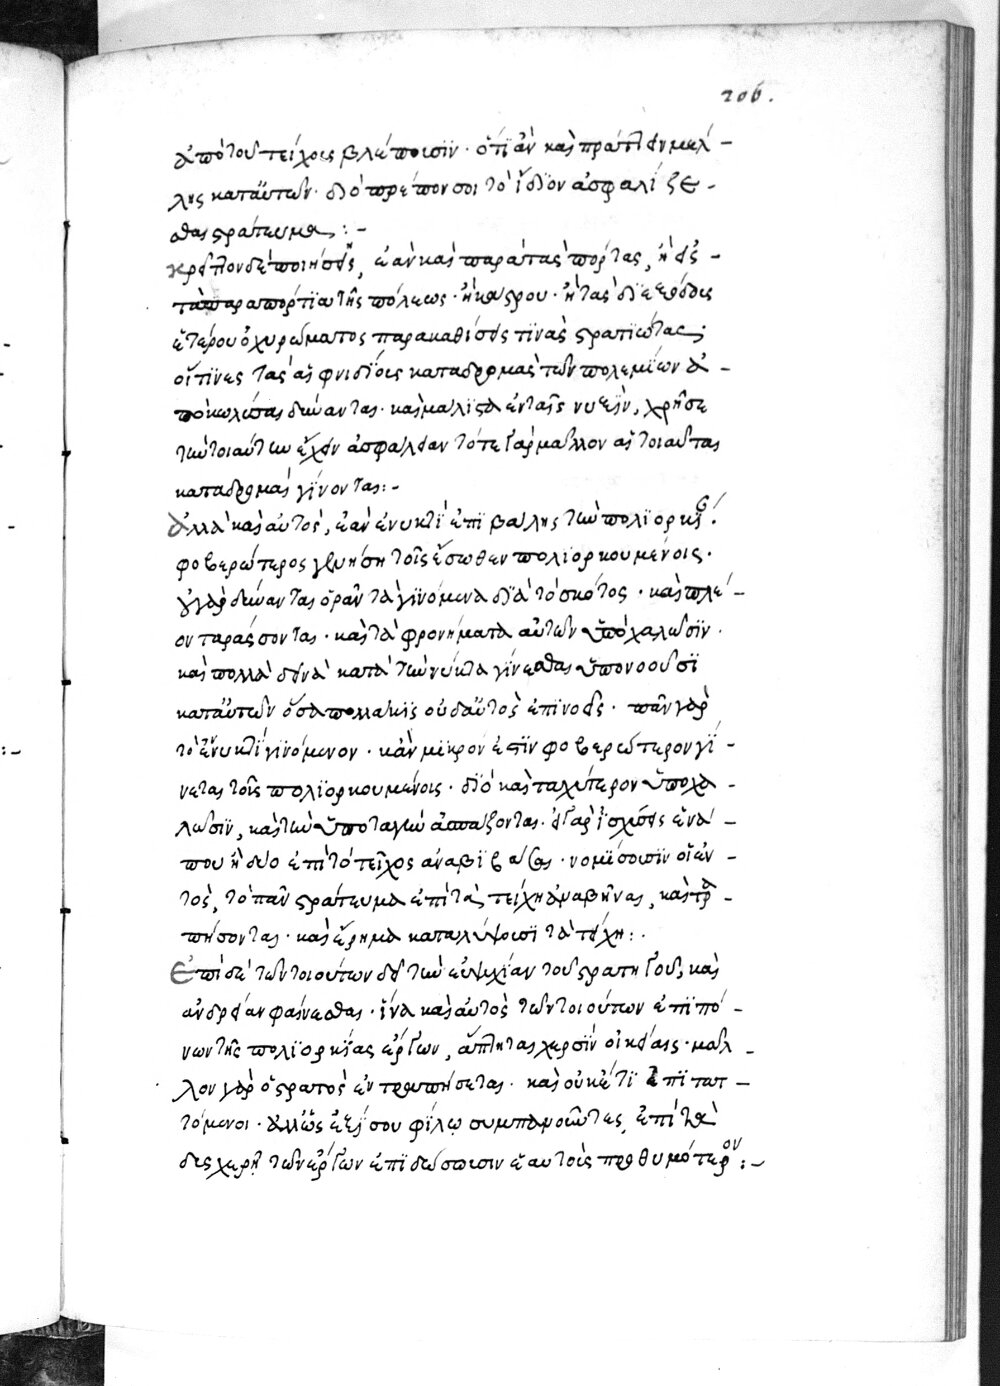 206.
ἀπὸ τοῦ τείχους βλέπουσϊν· ὅτϊ ἂν καὶ πράττειν μέλ-
λῃς κατ' αὐτῶν· διὸ πρέπον σοι τὸ ἴδϊον ἀσφαλίζε-
σθαι στράτευμα:-
κρεῖττον δὲ ποιήσεις, ἐὰν καὶ παρὰ τὰς πόρτας, ἢ εἰς
τὰ παραπόρτϊα τῆς πόλεως· ἢ κάστρου· ἢ τὰς διεξόδους
ἑτέρου ὀχυρώματος παρακαθίσεις τϊνὰς στρατϊώτας;
οἵτϊνες τὰς αἰφνιδίους καταδρομὰς τῶν πολεμίων ἀ-
ποκωλῦσαι δύνανται· καὶ μάλιστα ἐν ταῖς νυξὶν, χρή σε
τὴν τοιαύτην ἔχειν ἀσφάλειαν τότε γὰρ μᾶλλον αἱ τοιαῦται
καταδρομαὶ γίνονται:-
ἀλλὰ καὶ αὐτὸς, ἐὰν ἐν νυκτὶ ἐπϊβάλῃς τὴν πολϊορκίαν
φοβερώτερος γενήσῃ τοῖς ἔσωθεν πολϊορκουμένοις·
οὐ γὰρ δύνανται ὁρᾶν τὰ γϊνόμενα δϊὰ τὸ σκότος· καὶ πλέ-
ον ταράσσονται· καὶ τὰ φρονήματα αὐτῶν ὑποχαλῶσϊν·
καὶ πολλὰ δεινὰ κατὰ τὴν νύκτα γίνεσθαι ὑπονοοῦσϊ
κατ' αὐτῶν ὅσα πολλάκϊς οὐδ' αὐτὸς ἐπϊνοεῖς· πᾶν γὰρ
τὸ ἐν νυκτὶ γϊνόμενον· κἂν μϊκρόν ἐστϊν φοβερώτερον γί-
νεται τοῖς πολϊορκουμένοις· δϊὸ καὶ ταχύτερον ὑποχα-
λῶσϊν, καὶ τὴν ὑποταγὴν ἀσπάζονται· εἰ γὰρ ἰσχύσεις ἕνα
που ἢ δύο ἐπὶ τὸ τεῖχος ἀναβϊβάσαι· νομίσουσϊν οἱ ἐν-
τὸς, τὸ πᾶν στράτευμα ἐπὶ τὰ τείχη ἀναβῆναι, καὶ τρα-
πήσονται· καὶ ἔρημα καταλείψουσϊ τὰ τείχη:·
Ἐπὶ δὲ τῶν τοιούτων δεῖ τὴν εὐψυχίαν τοῦ στρατηγοῦ, καὶ
ἀνδρείαν φαίνεσθαι· ἵνα καὶ αὐτὸς τῶν τοιούτων ἐπϊπό-
νων τῆς πολϊορκίας ἔργων, ἅπτηται χερσὶν οἰκείαις· μᾶλ-
λον γὰρ ὁ στρατὸς ἐντραπήσεται· καὶ οὐκέτϊ ἐπϊταττ-
τόμενοι· ἀλλ' ὡς ἐξ ἴσου φίλῳ συμπονοῦντες, ἐπὶ τὰ
δυσχερῆ τῶν ἔργων ἐπϊδώσουσιν ἑαυτοὺς προθυμότερον:-